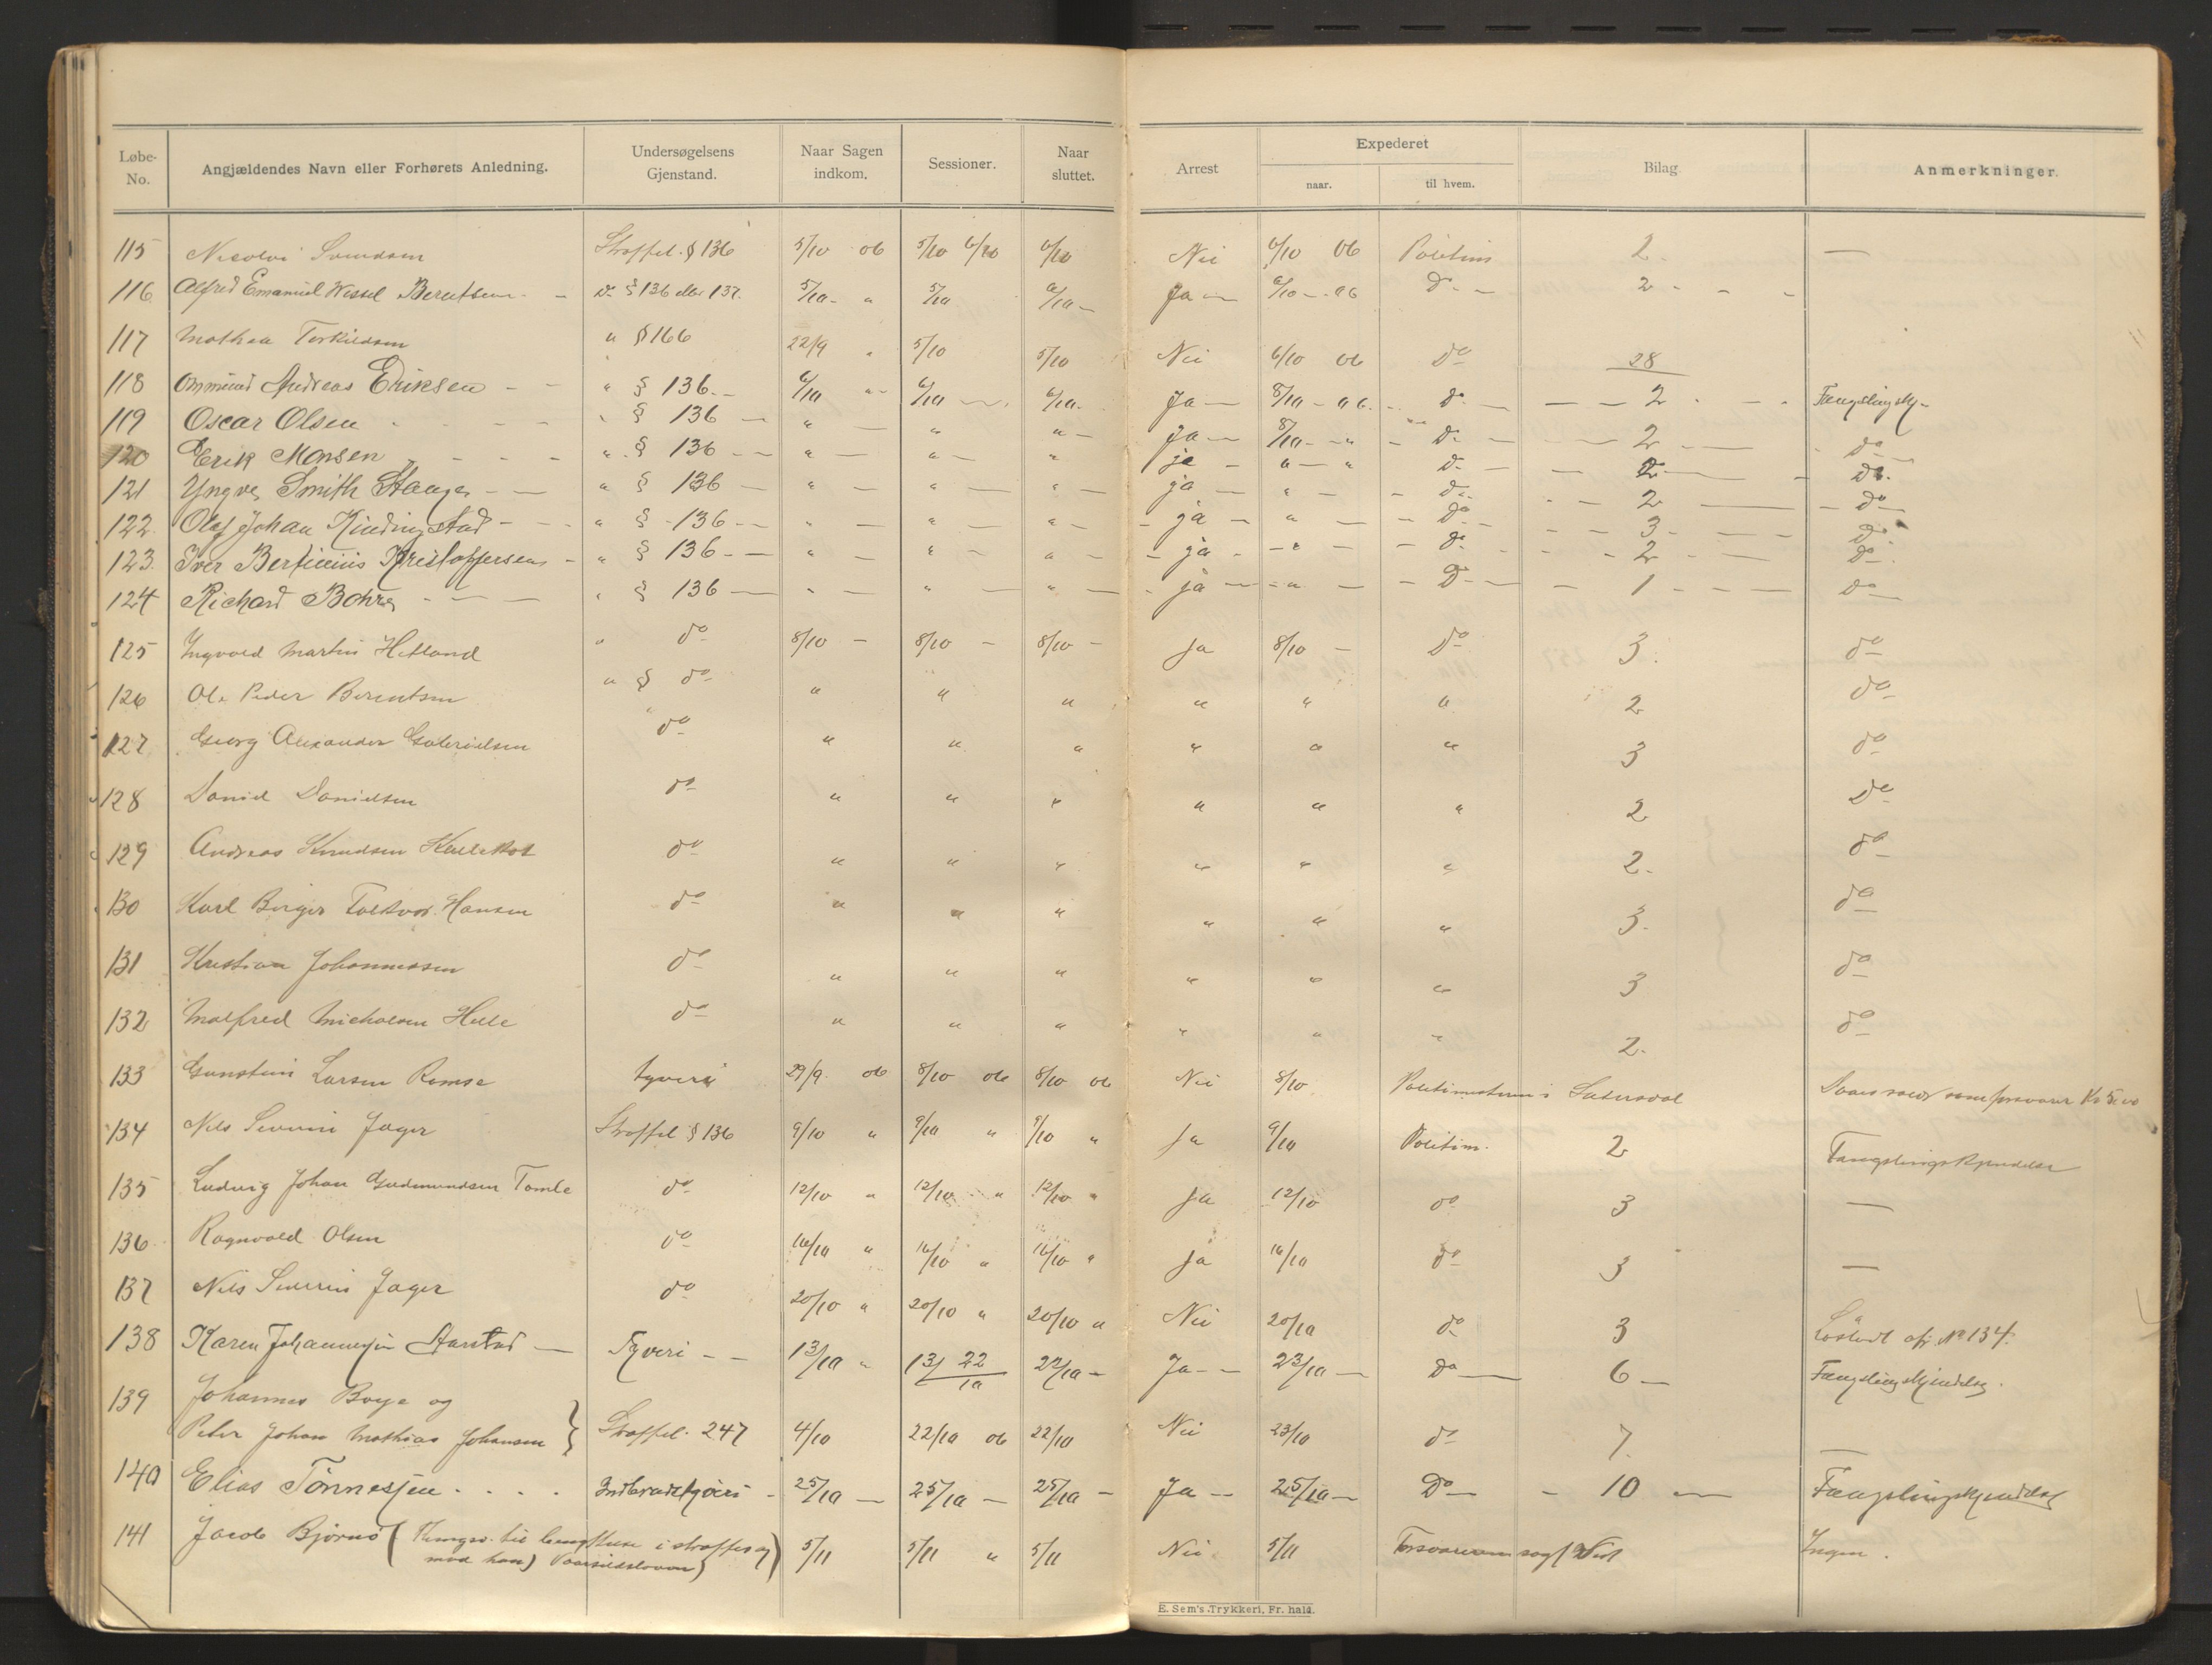 Løbe-No. Angjældendes Navn eller Forhørets Anledning. Undersøgelsens Gjenstand. Naar Sagen indkom. Sessioner. Naar sluttet. Arrest Expederet naar. til hvem. Bilag Anmerkninger.
115 Nicolai Svendsen Straffel. § 136 5/10 06 5/10 6/10 6/10 Nei 6/10 06 Politim 2. —
116 Alfred Emanuel Wessel Berntsen - - Do § 136 eller 137. 5/10 - " 5/10 6/10 - Ja - 6/10 - 06 Do - - 2 - - -
117 Mathea Torkildsen " § 166 22/9 " 5/10 5/10 Nei 6/10 06 Do 28
118 Ommund Andreas Eriksen - - " § 136. - 6/10 " - 6/10 - 6/10. Ja - 8/10 - 06. - Do - - - 2 - - - Fængslingskj-
119 Oscar Olsen - - - - " § 136 - " - " " - Ja - 8/10 - " - Do - - 2 - - Do -
120 Erik Monsen - - - - " § 136 - - " - " - " ja - " - " Do - - 2 - - Do.
121 Yngve Smith Stange - - " § 136 - " - " - " - ja - " - - Do - - 2 - - Do -
122. Olaf Johan Kindingstad - - - " § 136 - - " - " - " - - ja - " - - Do - - - 3 - - - Do
123. Iver Bertinius Kristoffersen - " § 136 - - " - " - " - - ja - - " - - Do - - - 2 - - Do.
124 Richard Bohre - - - " § 136 - " - " - " - - ja - - " - - Do - - 1 - - - Do -
125 Ingvald Martin Hetland " do 8/10 - 8/10 - 8/10 - Ja 8/10 - Do 3. do
126 Ole Peder Berentsen " § do " " " " " " 2 do
127 Georg Alexander Gabrielsen do " " " " " " 3 do
128 Daniel Danielsen do " " " " " " 2 Do
129 Andreas Knudsen do " " " " " " 2. do
130 Karl Birger Hansen do " " " " " " 3. do
131 Kristian Johannessen do " " " " " " 3 do
132 Malfred Michalsen Helle do " " " " " " 2. do
133 Gunstein Larsen Romse tyveri 29/9. 06 8/10 06 8/10 06 Nei 8/10 Politimesteren i Sætersdal
134 Nils Severin Jager Straffel § 136 9/10 " 9/10 " 9/10 " Ja 9/10 Politim. 2 Fængslingskjendelse
135 Ludvig Johan Gudmundsen Tomle do 12/10 " 12/10 " 12/10 " Ja 12/10 do 3 —
136 Ragnvald Olsen do 16/10 " 16/10 " 16/10 " Ja 16/10 do 3 —
137 Nils Severin Jager do 20/10 " 20/10 " 20/10 " Nei 20/10 do 3 Løsladt cfr. No 134.
138 Karen Johannesen Aarstad - Tyveri - - 13/10 " 13/ 22/10 22/10 - Ja - - 23/10 - Do - 6 - Fængslingskjendelse.
139 Johannes Boye og
Peter Johan Mathias Johansen } Straffel. 247 4/10 22/10 06 22/10 Nei 23/10 do 7. —
140 Elias Tønnesjen . . . . Indbrudstyveri - 25/10 - 25/10 - 25/10 - Ja - - 25/10 - Do - - 10 - Fængslingskjendelse
141 Jacob Bjørnø ( til i straffesag
mod ham) ) 5/11 5/11 " 5/11 Nei 5/11 Ingen.
E. Sem's Trykkeri, Fr. hald.